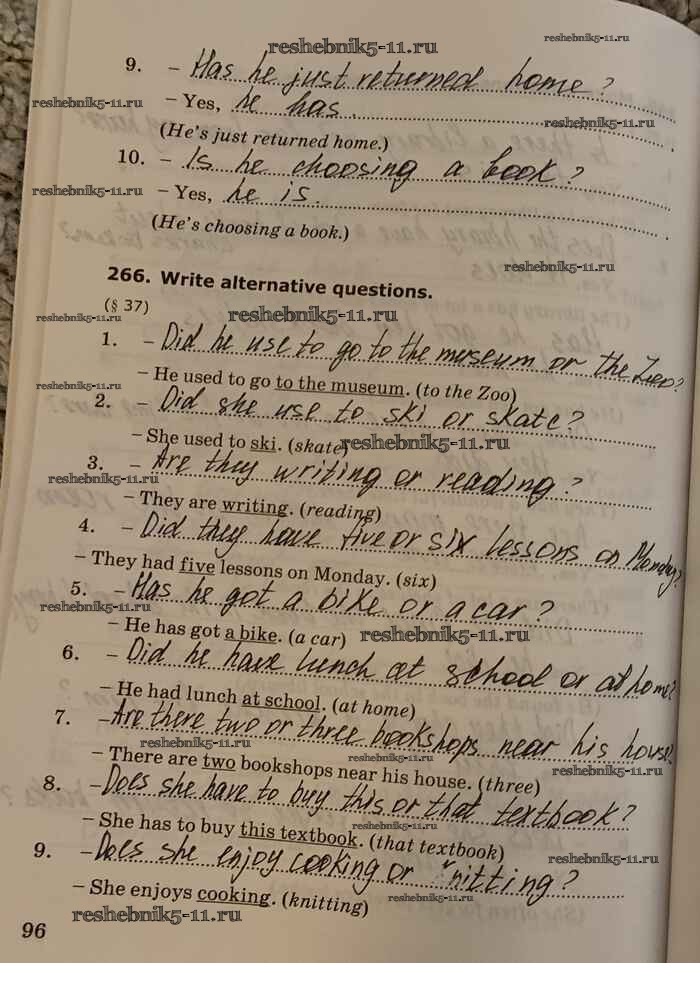 reshebnik5-11.ru
reshebnik5-11.ru
9. – Has he just returned home?
reshebnik5-11.ru
– Yes, he has.
reshebnik5-11.ru
(He's just returned home.)
10. – Is he choosing a book?
reshebnik5-11.ru
– Yes, he is.
(He's choosing a book.)
reshebnik5-11.ru
266. Write alternative questions.
(§ 37)
reshebnik5-11.ru
reshebnik5-11.ru
1. – Did he use to go to the museum or the Zoo?
– He used to go to the museum. (to the Zoo)
reshebnik5-11.ru
2. – Did she use to ski or skate?
– She used to ski. (skate)
reshebnik5-11.ru
3. – Are they writing or reading?
reshebnik5-11.ru
– They are writing. (reading)
4. – Did they have five or six lessons on Monday?
– They had five lessons on Monday. (six)
5. – Has he got a bike or a car?
reshebnik5-11.ru
– He has got a bike. (a car)
reshebnik5-11.ru
6. – Did he have lunch at school or at home?
– He had lunch at school. (at home)
7. – Are there two or three bookshops near his house?
reshebnik5-11.ru
reshebnik5-11.ru
– There are two bookshops near his house. (three)
reshebnik5-11.ru
8. – Does she have to buy this or that textbook?
– She has to buy this textbook. (that textbook)
reshebnik5-11.ru
9. – Does she enjoy cooking or knitting?
reshebnik5-11.ru
– She enjoys cooking. (knitting)
reshebnik5-11.ru
reshebnik5-11.ru
96